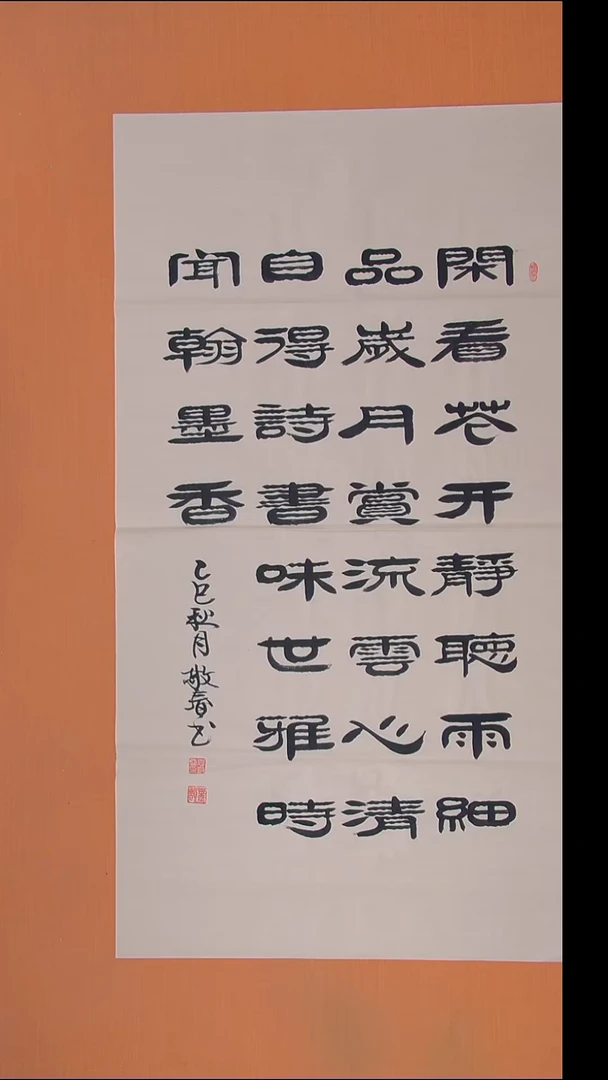 閑看花开靜聽雨細
品歲月賞流雲心清
自得詩書味世雅時
聞翰墨香
乙巳秋月敬春书